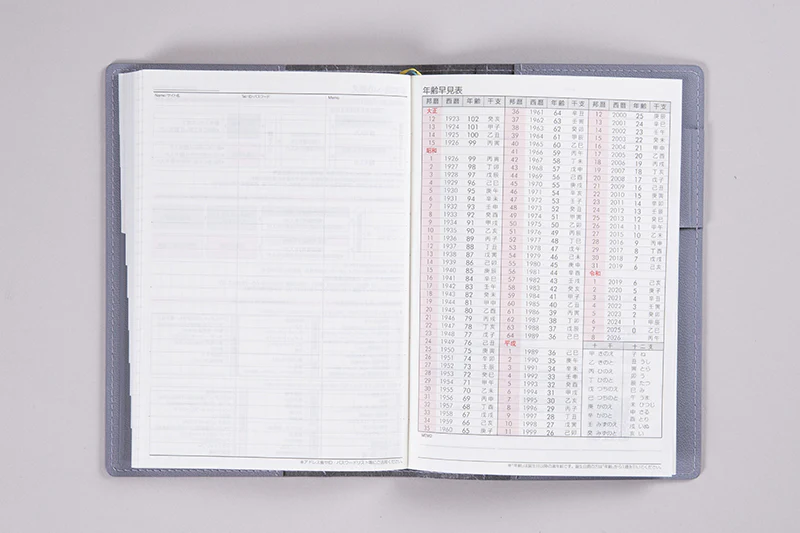 Name/サイト名 Tel・ID・パスワード Memo
年齢早見表
邦暦 西暦 年齢 干支
大正
12 1923 102 癸亥
13 1924 101 甲子
14 1925 100 乙丑
15 1926 99 丙寅
昭和
1 1926 99 丙寅
2 1927 98 丁卯
3 1928 97 戊辰
4 1929 96 己巳
5 1930 95 庚午
6 1931 94 辛未
7 1932 93 壬申
8 1933 92 癸酉
9 1934 91 甲戌
10 1935 90 乙亥
11 1936 89 丙子
12 1937 88 丁丑
13 1938 87 戊寅
14 1939 86 己卯
15 1940 85 庚辰
16 1941 84 辛巳
17 1942 83 壬午
18 1943 82 癸未
19 1944 81 甲申
20 1945 80 乙酉
21 1946 79 丙戌
22 1947 78 丁亥
23 1948 77 戊子
24 1949 76 己丑
25 1950 75 庚寅
26 1951 74 辛卯
27 1952 73 壬辰
28 1953 72 癸巳
29 1954 71 甲午
30 1955 70 乙未
31 1956 69 丙申
32 1957 68 丁酉
33 1958 67 戊戌
34 1959 66 己亥
35 1960 65 庚子
邦暦 西暦 年齢 干支
36 1961 64 辛丑
37 1962 63 壬寅
38 1963 62 癸卯
39 1964 61 甲辰
40 1965 60 乙巳
41 1966 59 丙午
42 1967 58 丁未
43 1968 57 戊申
44 1969 56 己酉
45 1970 55 庚戌
46 1971 54 辛亥
47 1972 53 壬子
48 1973 52 癸丑
49 1974 51 甲寅
50 1975 50 乙卯
51 1976 49 丙辰
52 1977 48 丁巳
53 1978 47 戊午
54 1979 46 己未
55 1980 45 庚申
56 1981 44 辛酉
57 1982 43 壬戌
58 1983 42 癸亥
59 1984 41 甲子
60 1985 40 乙丑
61 1986 39 丙寅
62 1987 38 丁卯
63 1988 37 戊辰
64 1989 36 己巳
平成
1 1989 36 己巳
2 1990 35 庚午
3 1991 34 辛未
4 1992 33 壬申
5 1993 32 癸酉
6 1994 31 甲戌
7 1995 30 乙亥
8 1996 29 丙子
9 1997 28 丁丑
10 1998 27 戊寅
11 1999 26 己卯
邦暦 西暦 年齢 干支
12 2000 25 庚辰
13 2001 24 辛巳
14 2002 23 壬午
15 2003 22 癸未
16 2004 21 甲申
17 2005 20 乙酉
18 2006 19 丙戌
19 2007 18 丁亥
20 2008 17 戊子
21 2009 16 己丑
22 2010 15 庚寅
23 2011 14 辛卯
24 2012 13 壬辰
25 2013 12 癸巳
26 2014 11 甲午
27 2015 10 乙未
28 2016 9 丙申
29 2017 8 丁酉
30 2018 7 戊戌
31 2019 6 己亥
令和
1 2019 6 己亥
2 2020 5 庚子
3 2021 4 辛丑
4 2022 3 壬寅
5 2023 2 癸卯
6 2024 1 甲辰
7 2025 0 乙巳
8 2026 丙午
十干 十二支
甲 きのえ 子 ね
乙 きのと 丑 うし
丙 ひのえ 寅 とら
丁 ひのと 卯 う
戊 つちのえ 辰 たつ
己 つちのと 巳 み
庚 かのえ 午 うま
辛 かのと 未 ひつじ
壬 みずのえ 申 さる
癸 みずのと 酉 とり
戌 いぬ
亥 い
MEMO